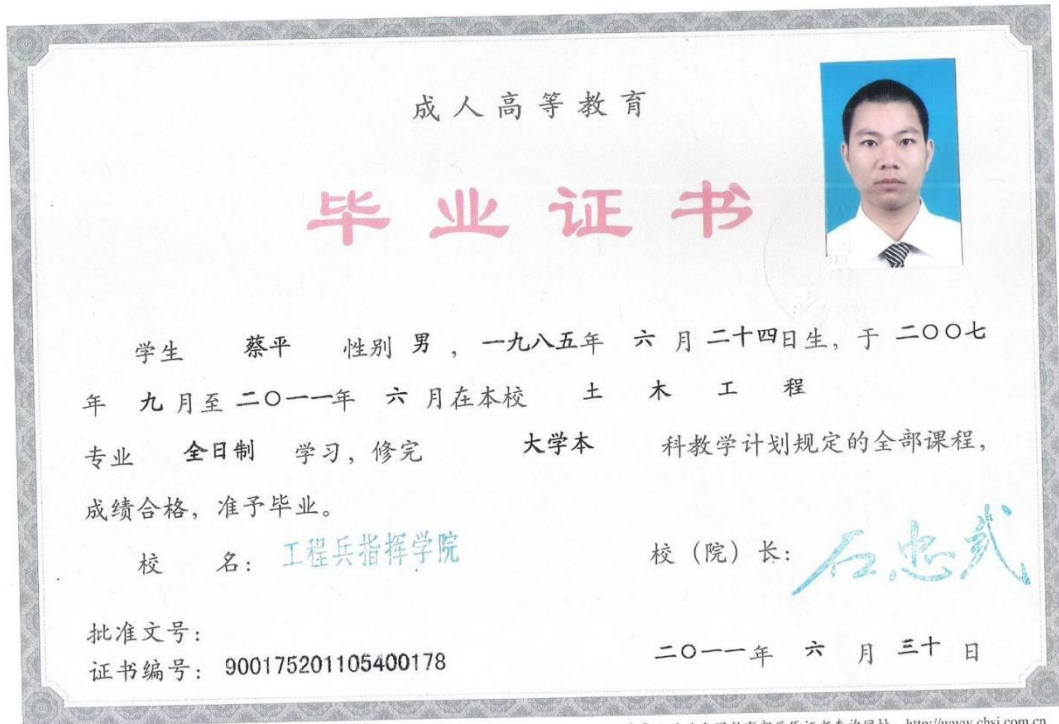 成人高等教育
毕业证书
学生 蔡平 性别 男 ，一九八五年 六 月 二十四日生，于 二〇〇七
年 九 月至 二〇一一年 六 月在本校 土 木 工 程
专业 全日制 学习，修完 大学本 科教学计划规定的全部课程，
成绩合格，准予毕业。
校 名：工程兵指挥学院
校（院）长：石忠武
批准文号：
证书编号：900175201105400178
二〇一一年 六 月 三十 日
http://www.chsi.com.cn